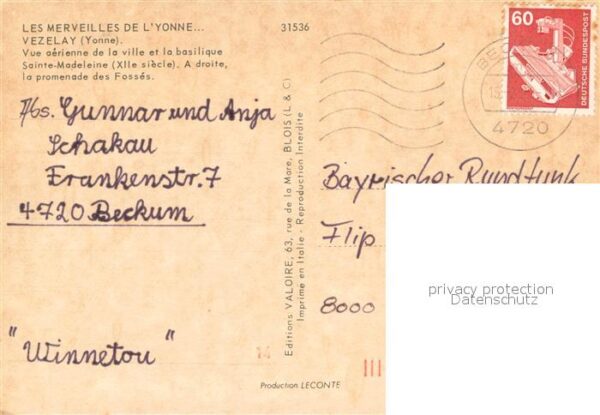 LES MERVEILLES DE L'YONNE...
VEZELAY (Yonne).
Vue aérienne de la ville et la basilique
Sainte-Madeleine (XIIe siècle). A droite,
la promenade des Fossés.
31536
Abs. Gunnar und Anja
Schakau
Frankenstr. 7
4720 Beckum
"Winnetou"
Editions VALOIRE, 63, rue de la Mare, BLOIS (L & C)
Imprimé en Italie - Reproduction Interdite
Production LECONTE
60
DEUTSCHE BUNDESPOST
4720
Bayrischer Rundfunk
Flip
8000
privacy protection
Datenschutz